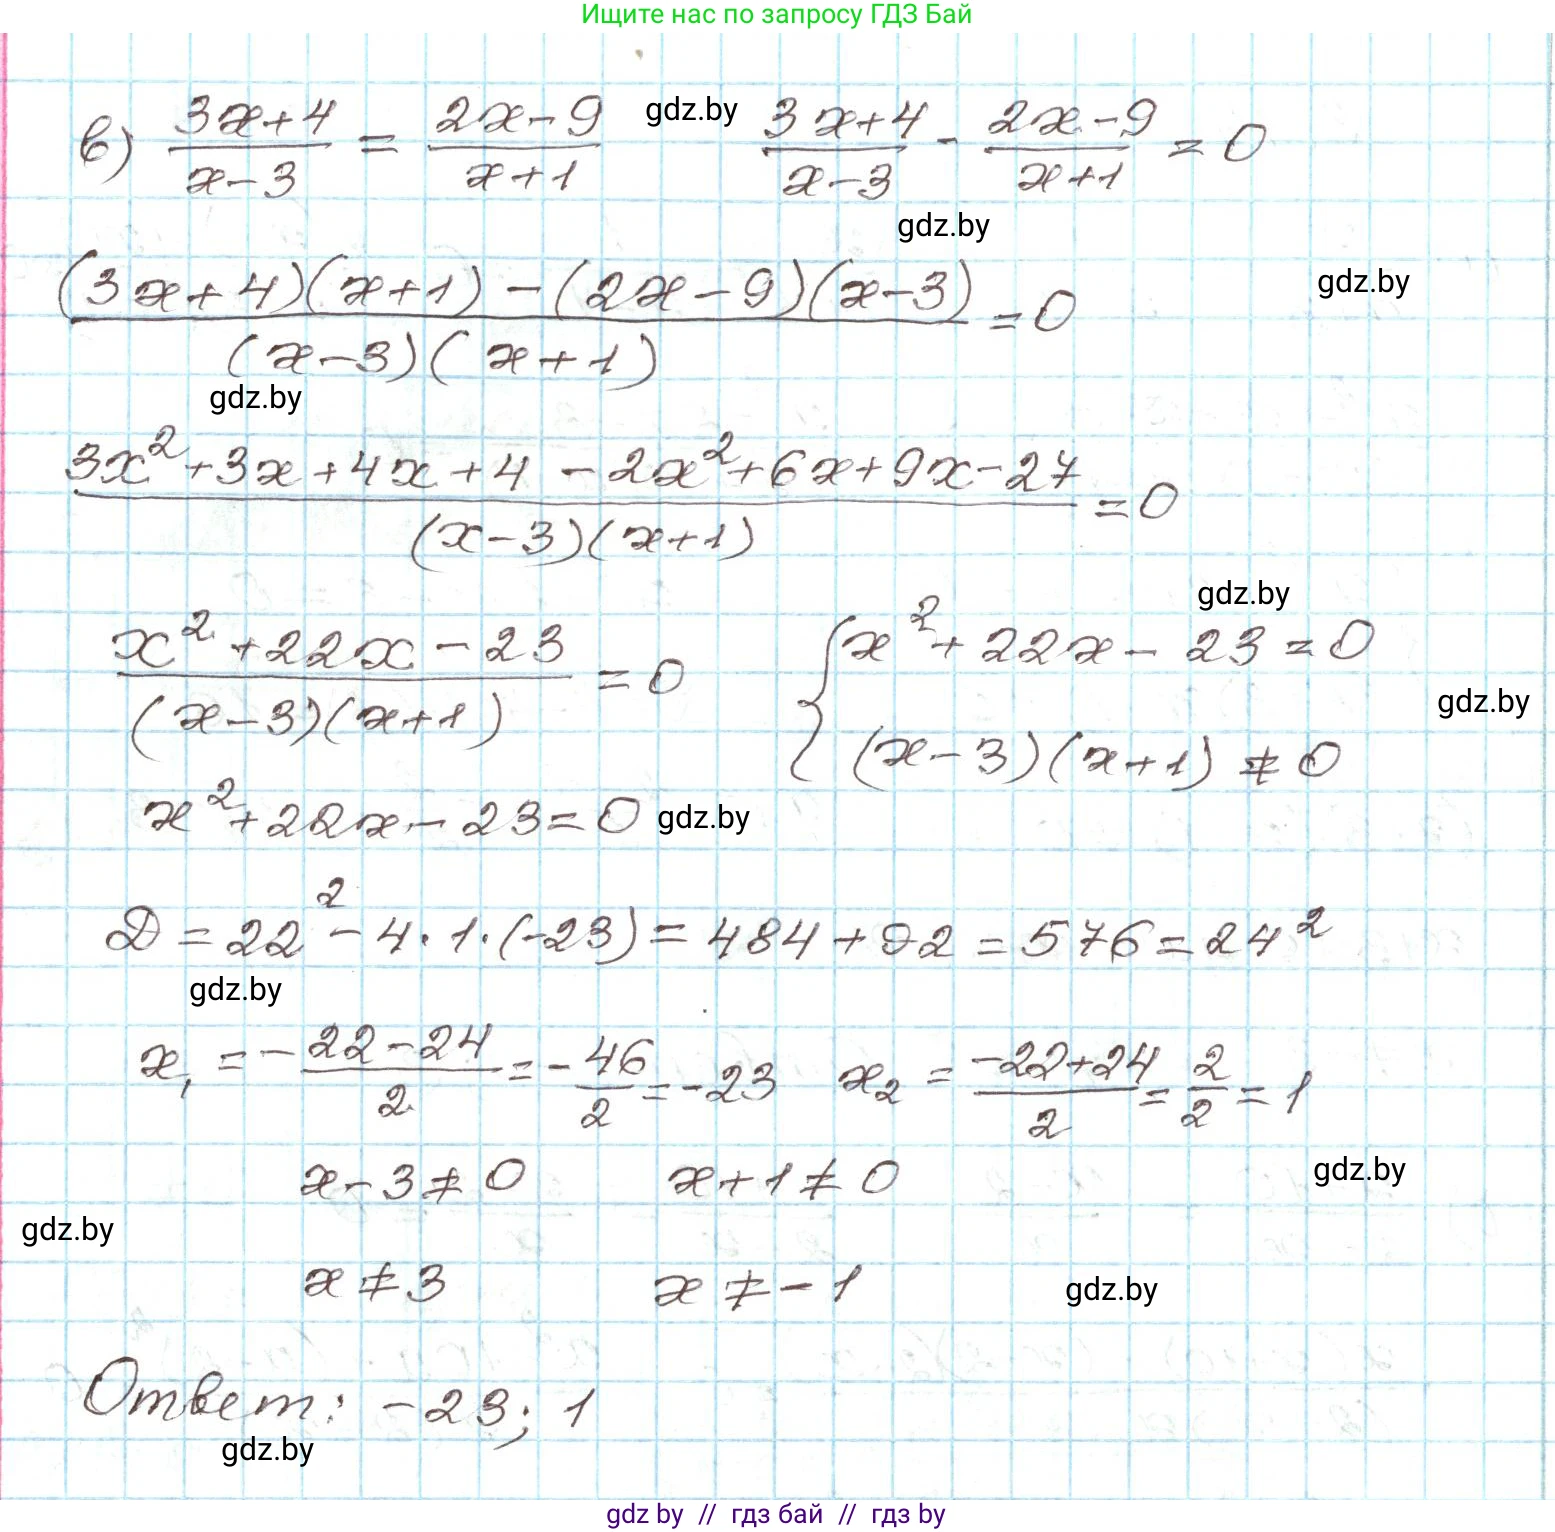 Ищите нас по запросу ГДЗ Бай
в) (3x+4)/(x-3) = (2x-9)/(x+1) gdz.by (3x+4)/(x-3) - (2x-9)/(x+1) = 0
gdz.by
((3x+4)(x+1) - (2x-9)(x-3))/((x-3)(x+1)) = 0 gdz.by
gdz.by
(3x²+3x+4x+4-2x²+6x+9x-27)/((x-3)(x+1)) = 0
gdz.by
(x²+22x-23)/((x-3)(x+1)) = 0 { x²+22x-23=0
(x-3)(x+1) ≠ 0 gdz.by
x²+22x-23=0 gdz.by
Д = 22²-4·1·(-23) = 484+92 = 576 = 24²
gdz.by
x₁ = -(22-24)/2 = -46/2 = -23 x₂ = (-22+24)/2 = 2/2 = 1
x-3≠0 x+1≠0 gdz.by
gdz.by
x≠3 x≠-1 gdz.by
Ответ: -23; 1
gdz.by
gdz by // гдз бай // гдз by